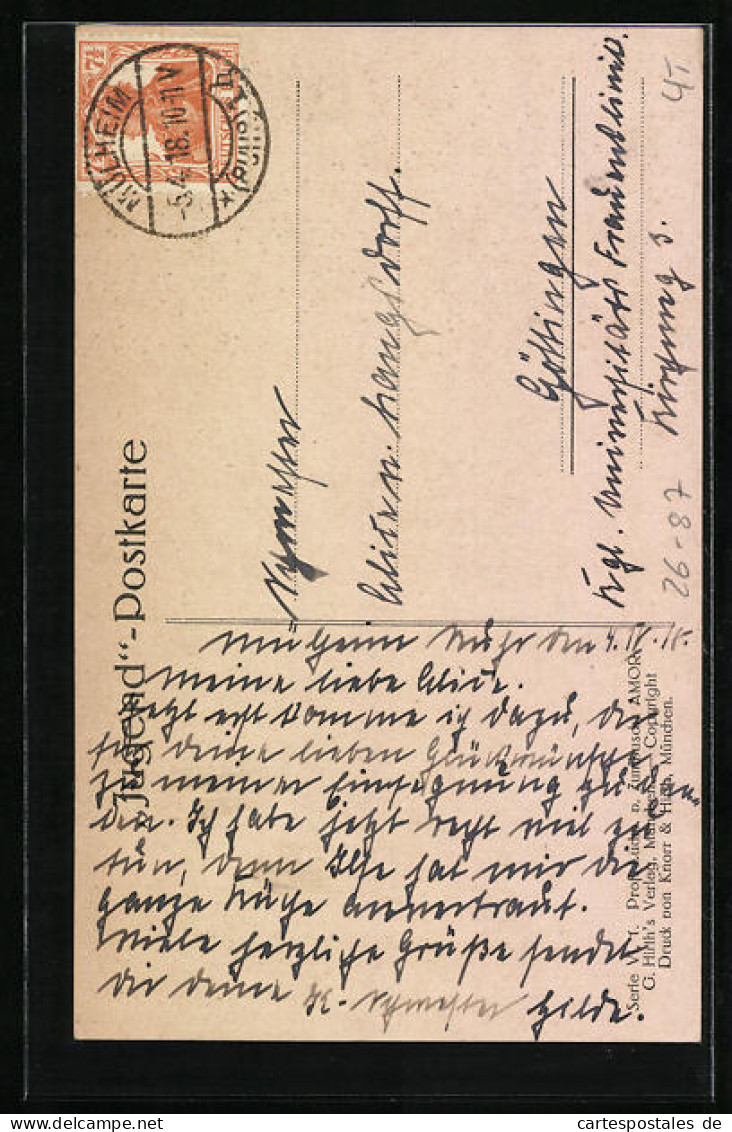 „Jugend“-Postkarte
7½
MÜLHEIM
-5.4.18.10-11V
(RUHR)
Schwester
Alice v. Langsdorff.
Göttingen
Kgl. Universitäts Frauenklinik.
Kirchweg 3.
26-87
4,-
Mülheim Ruhr den 4.IV.18.
Meine liebe Alice.
Jetzt erst komme ich dazu, dir
für deine lieben Glückwünsche
zu meiner Einsegnung zu
den. Ich habe jetzt recht viel zu
tun, denn Ilse hat mir die
ganze Küche anvertraut.
Viele herzliche Grüße sendet
dir deine Schwester Hilde.
Serie AMOR
G. Hirth's Verlag, München. Copyright
Druck von Knorr & Hirth, München.
cartespostales de